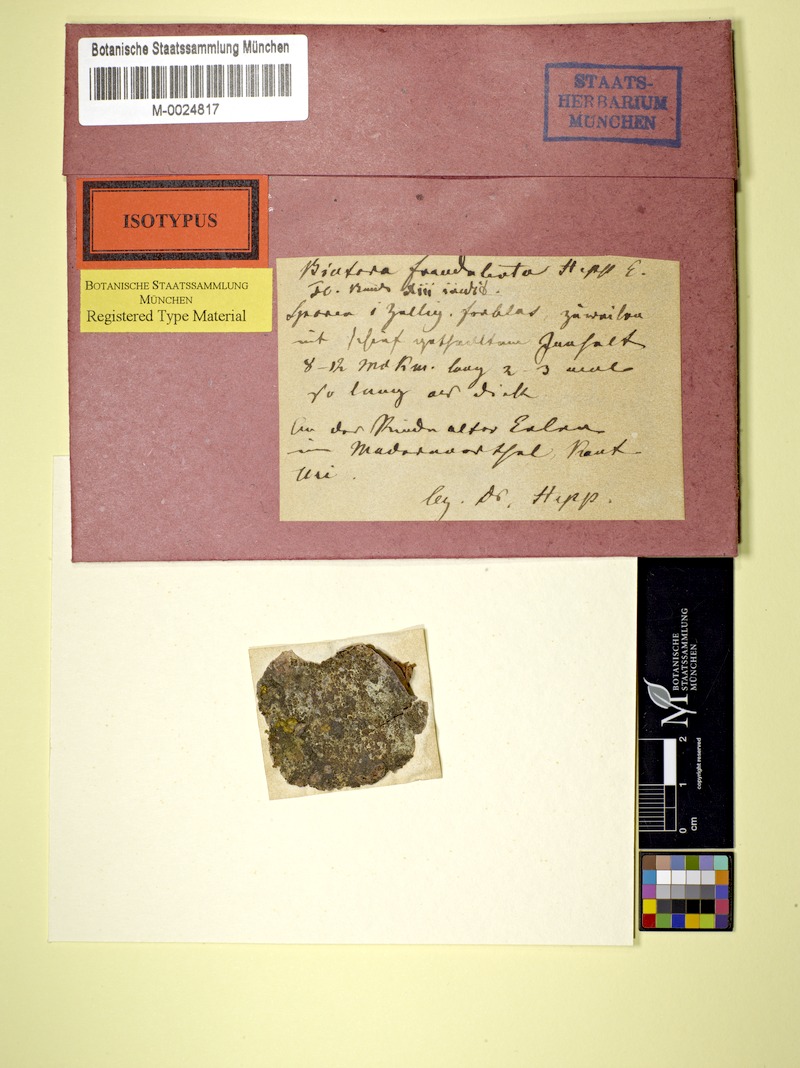 Botanische Staatssammlung München
M-0024817
STAATS-
HERBARIUM
MÜNCHEN
ISOTYPUS
BOTANISCHE STAATSSAMMLUNG
MÜNCHEN
Registered Type Material
Biatora fraudulenta Hepp E.
Sporen 1 zellig. farblos, zuweilen
mit schief getheiltem Inhalt
8-12 long 2-3 mal
so lang als dick
An der Rinde alter Erlen
im Maderanerthal Kant.
Uri.
leg. Dr. Hepp.
BOTANISCHE
STAATSSAMMLUNG
MÜNCHEN
0 1 2
cm
copyright reserved